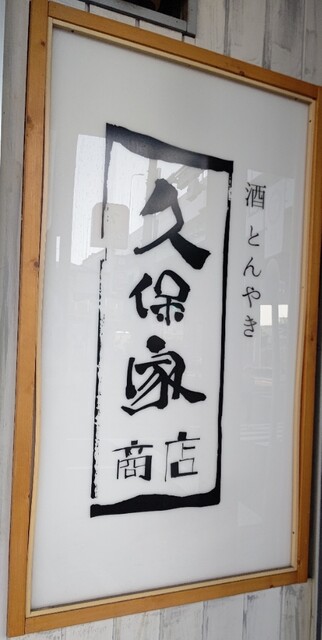 酒 とんやき
久保家
商店